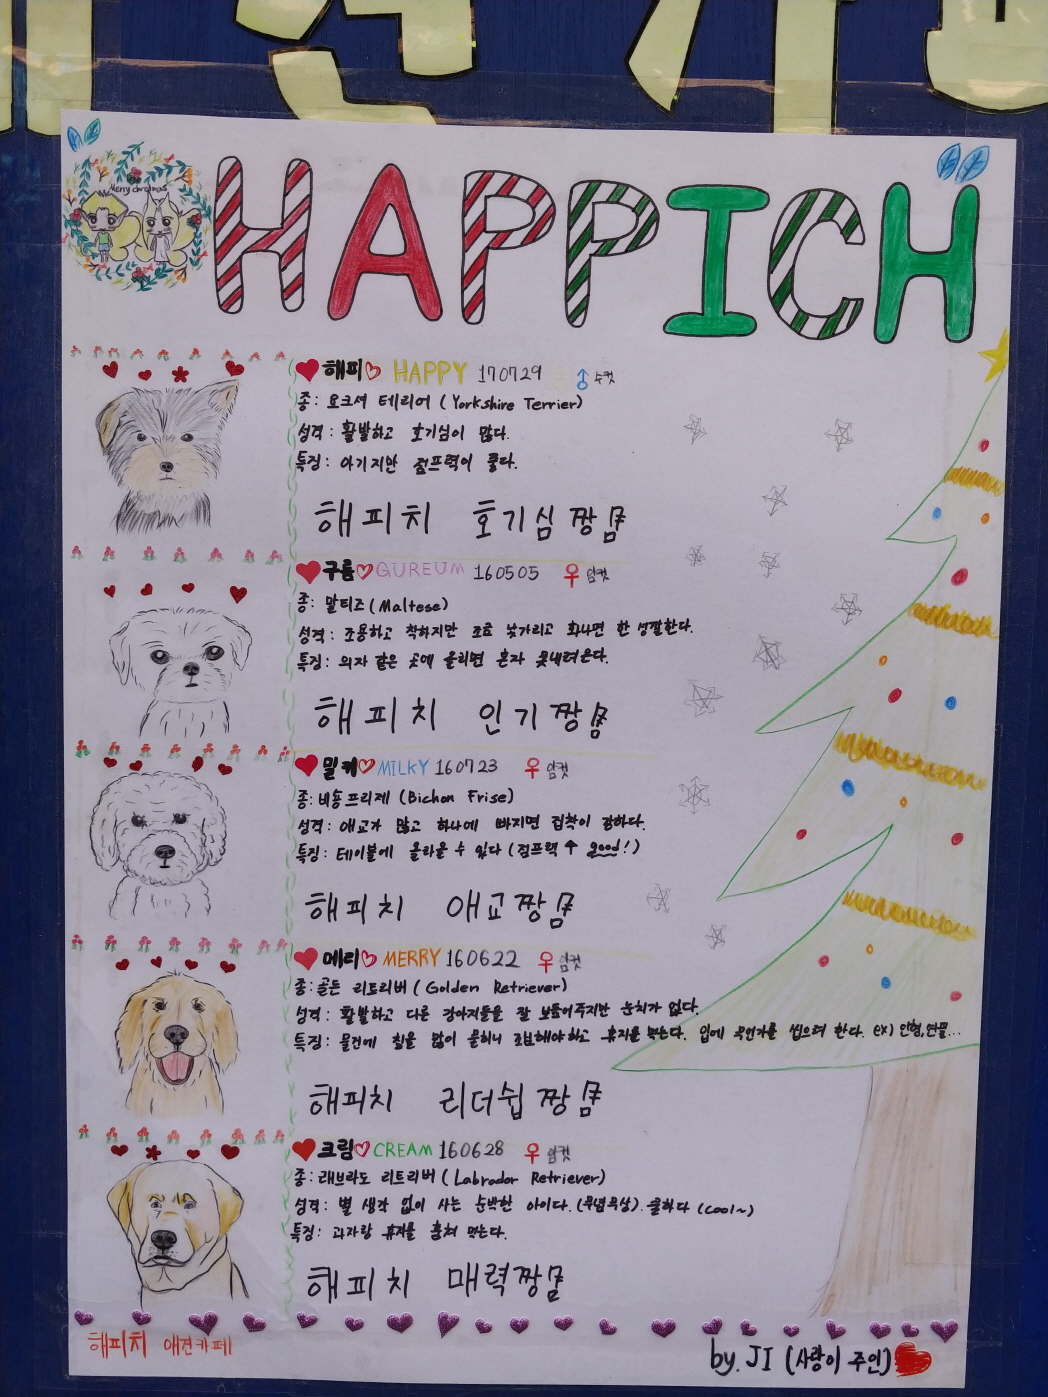 Merry christmas
HAPPICH
해피 HAPPY 170729 수컷
종: 요크셔 테리어 (Yorkshire Terrier)
성격: 활발하고 호기심이 많다.
특징: 아기지만 점프력이 좋다.
해피치 호기심짱
구름 GUREUM 160505 암컷
종: 말티즈 (Maltese)
성격: 조용하고 착하지만 조금 낯가리고 화나면 한 성깔한다.
특징: 의자 같은 곳에 올리면 혼자 못내려온다.
해피치 인기짱
밀키 MILKY 160723 암컷
종: 비숑프리제 (Bichon Frise)
성격: 애교가 많고 하나에 빠지면 집착이 강하다.
특징: 테이블에 올라올 수 있다 (점프력 ↑ good!)
해피치 애교짱
메리 MERRY 160622 암컷
종: 골든 리트리버 (Golden Retriever)
성격: 활발하고 다른 강아지들을 잘 보듬어주지만 눈치가 없다.
특징: 물건에 침을 많이 흘리니 조심해야하고 휴지를 먹는다. 입에 무언가를 씹으려 한다. ex) 인형,
해피치 리더쉽짱
크림 CREAM 160628 암컷
종: 래브라도 리트리버 (Labrador Retriever)
성격: 별 생각 없이 사는 순박한 아이다. (무념무상). 쿨하다 (cool~)
특징: 과자랑 휴지를 훔쳐 먹는다.
해피치 매력짱
해피치 애견카페
by. JI (사랑이 주인)